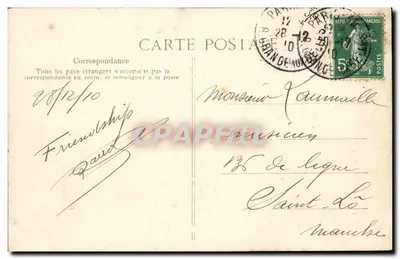 CARTE POSTALE
Correspondance
Tous les pays étrangers n'acceptent pas la
correspondance au recto, se renseigner à la poste
28/12/10
Friendship
PARIS
12
28 -12
10
5c
POSTES
CPAPHIL
Monsieur
musicien
136 de ligne
Saint Lô
Manche